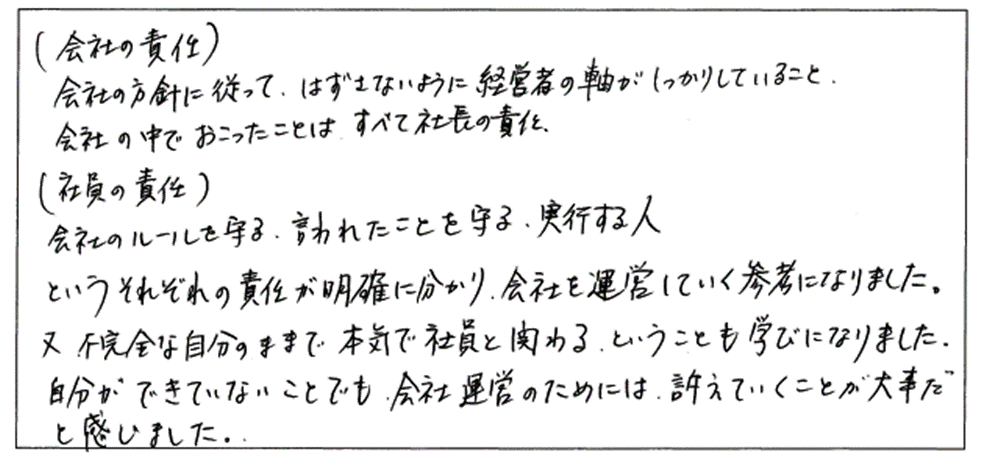 (会社の責任)
会社の方針に従って、はずさないように経営者の軸がしっかりしていること、
会社の中でおこったことは、すべて社長の責任、
(社員の責任)
会社のルールを守る、言われたことを守る、実行する人
というそれぞれの責任が明確に分かり、会社を運営していく参考になりました。
又、不完全な自分のままで本気で社員と関わる、ということも学びになりました。
自分ができていないことでも、会社運営のためには、訴えていくことが大事だ
と感じました。